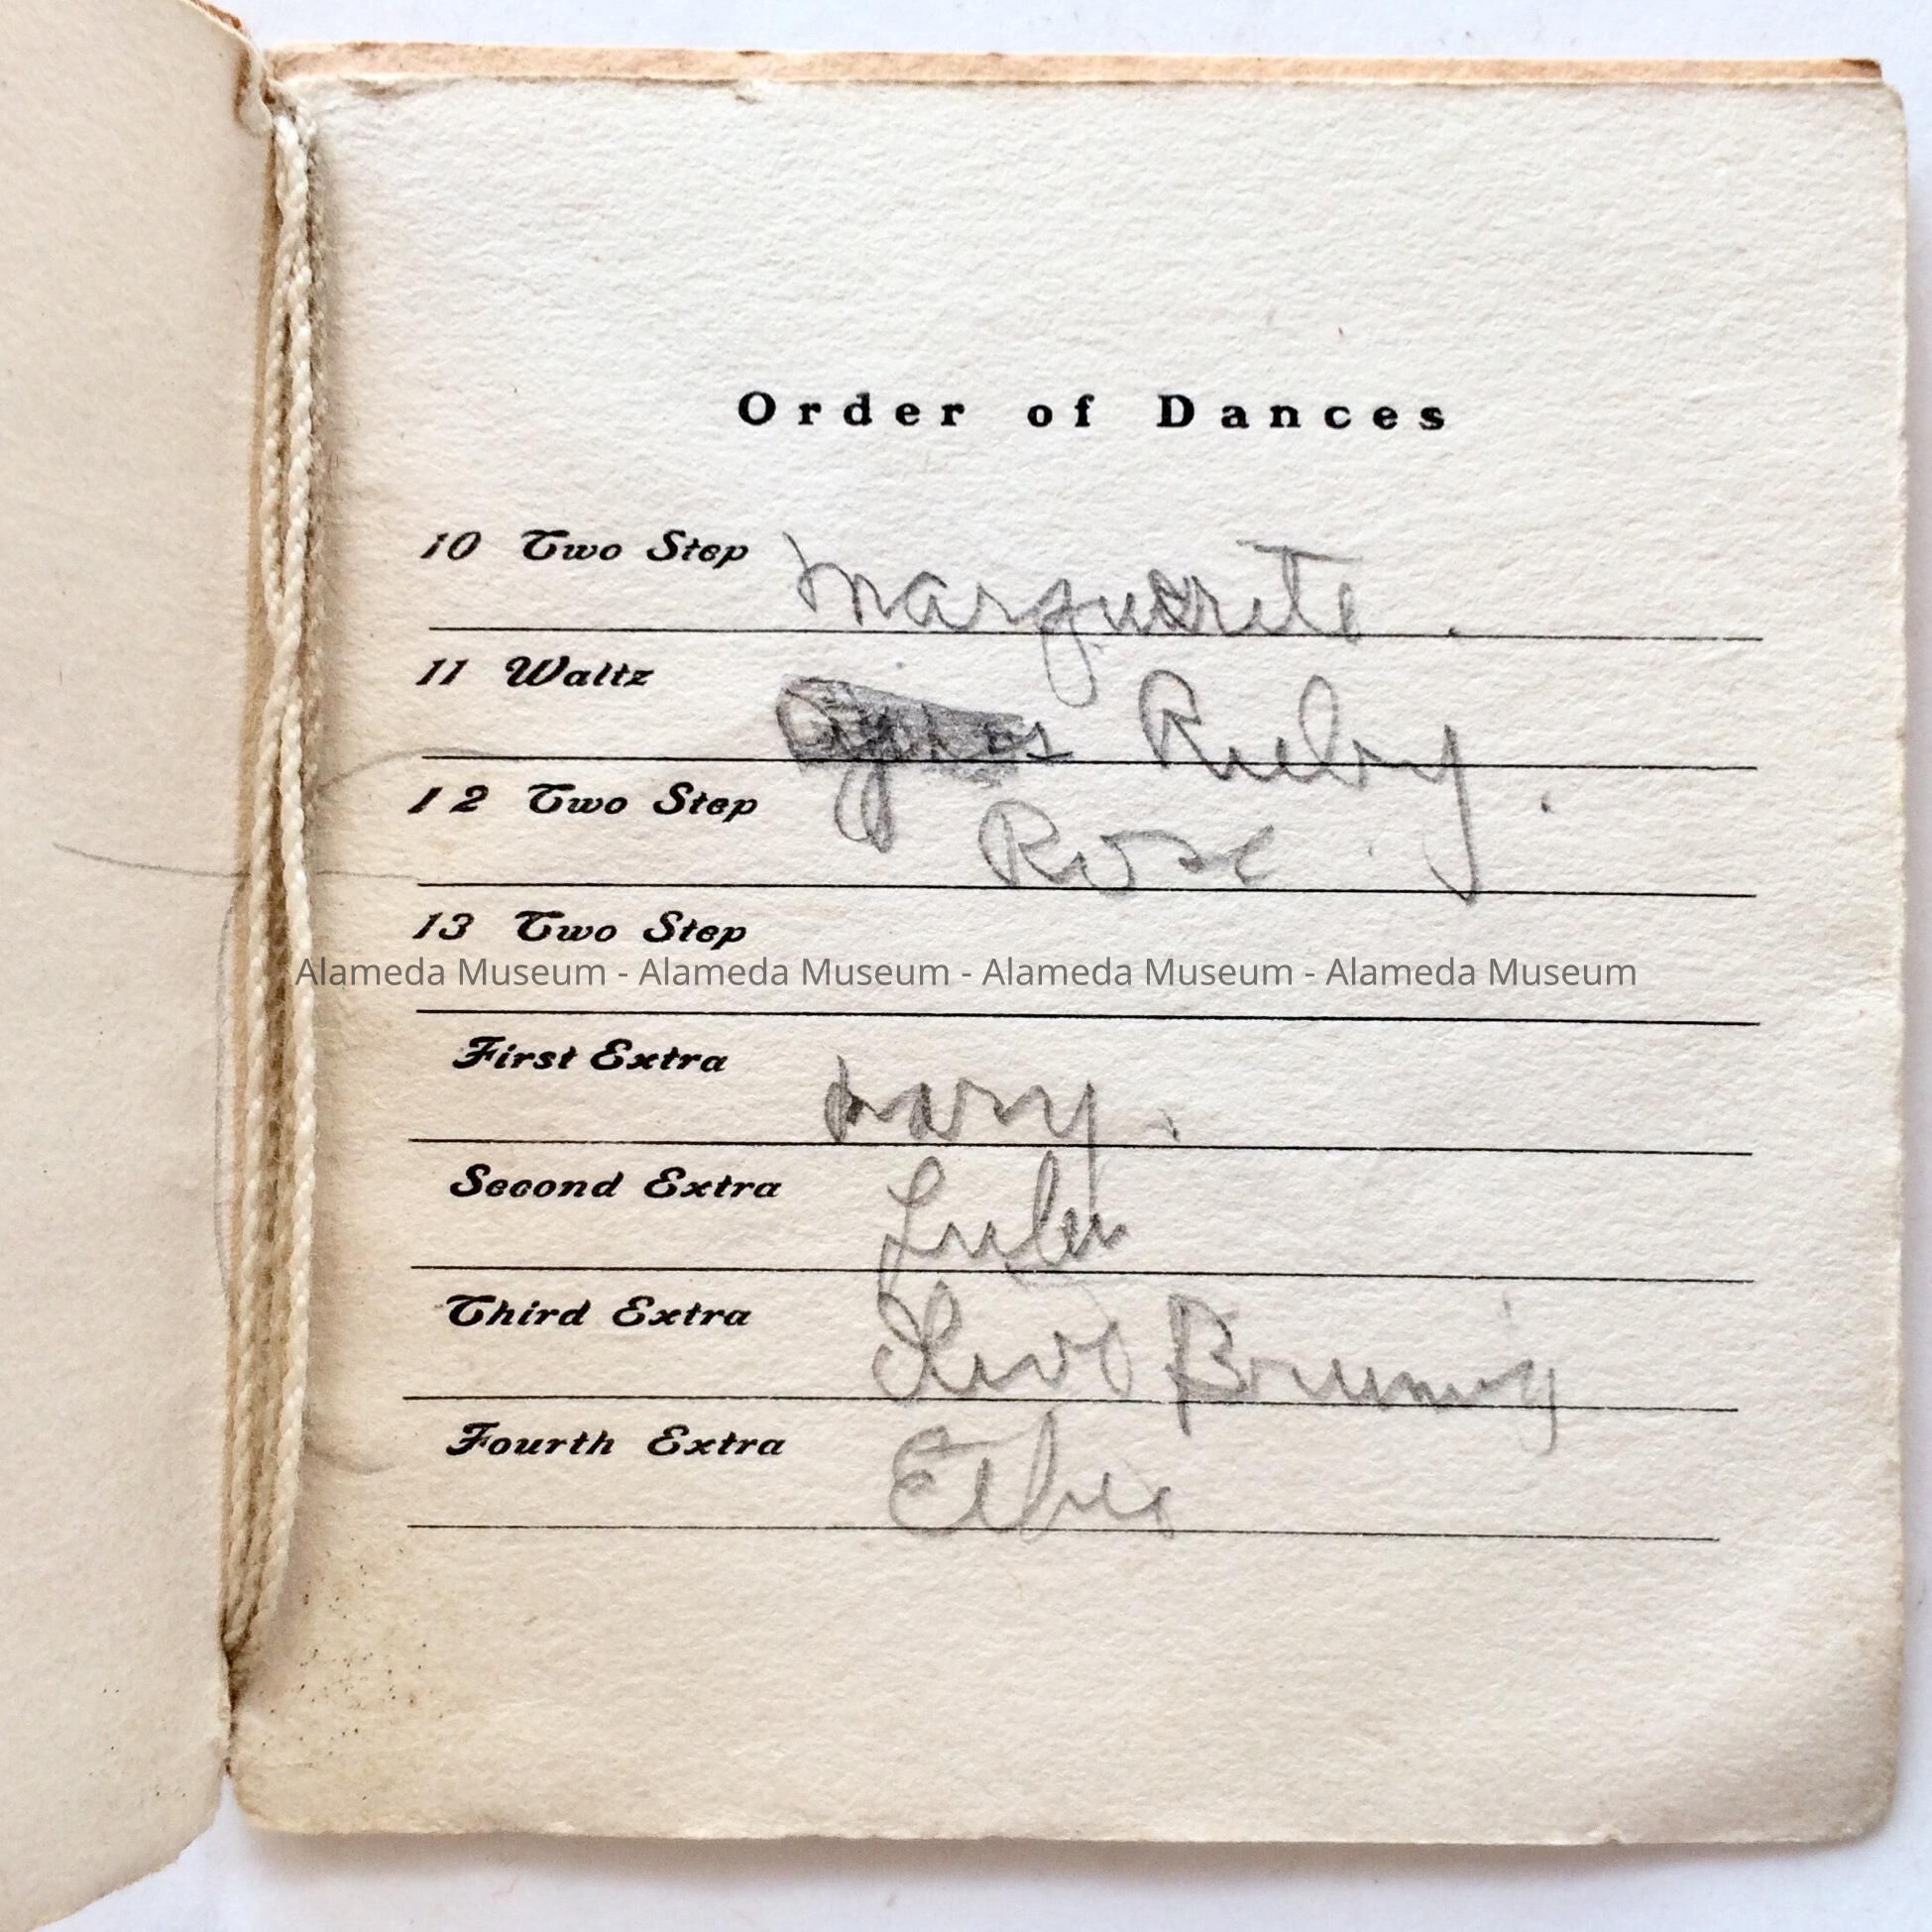 Order of Dances
10 Two Step Marguerite.
11 Waltz Agnes Ruby.
12 Two Step Rose.
13 Two Step
Alameda Museum - Alameda Museum - Alameda Museum - Alameda Museum
First Extra Mary.
Second Extra Lulu
Third Extra Bruning
Fourth Extra